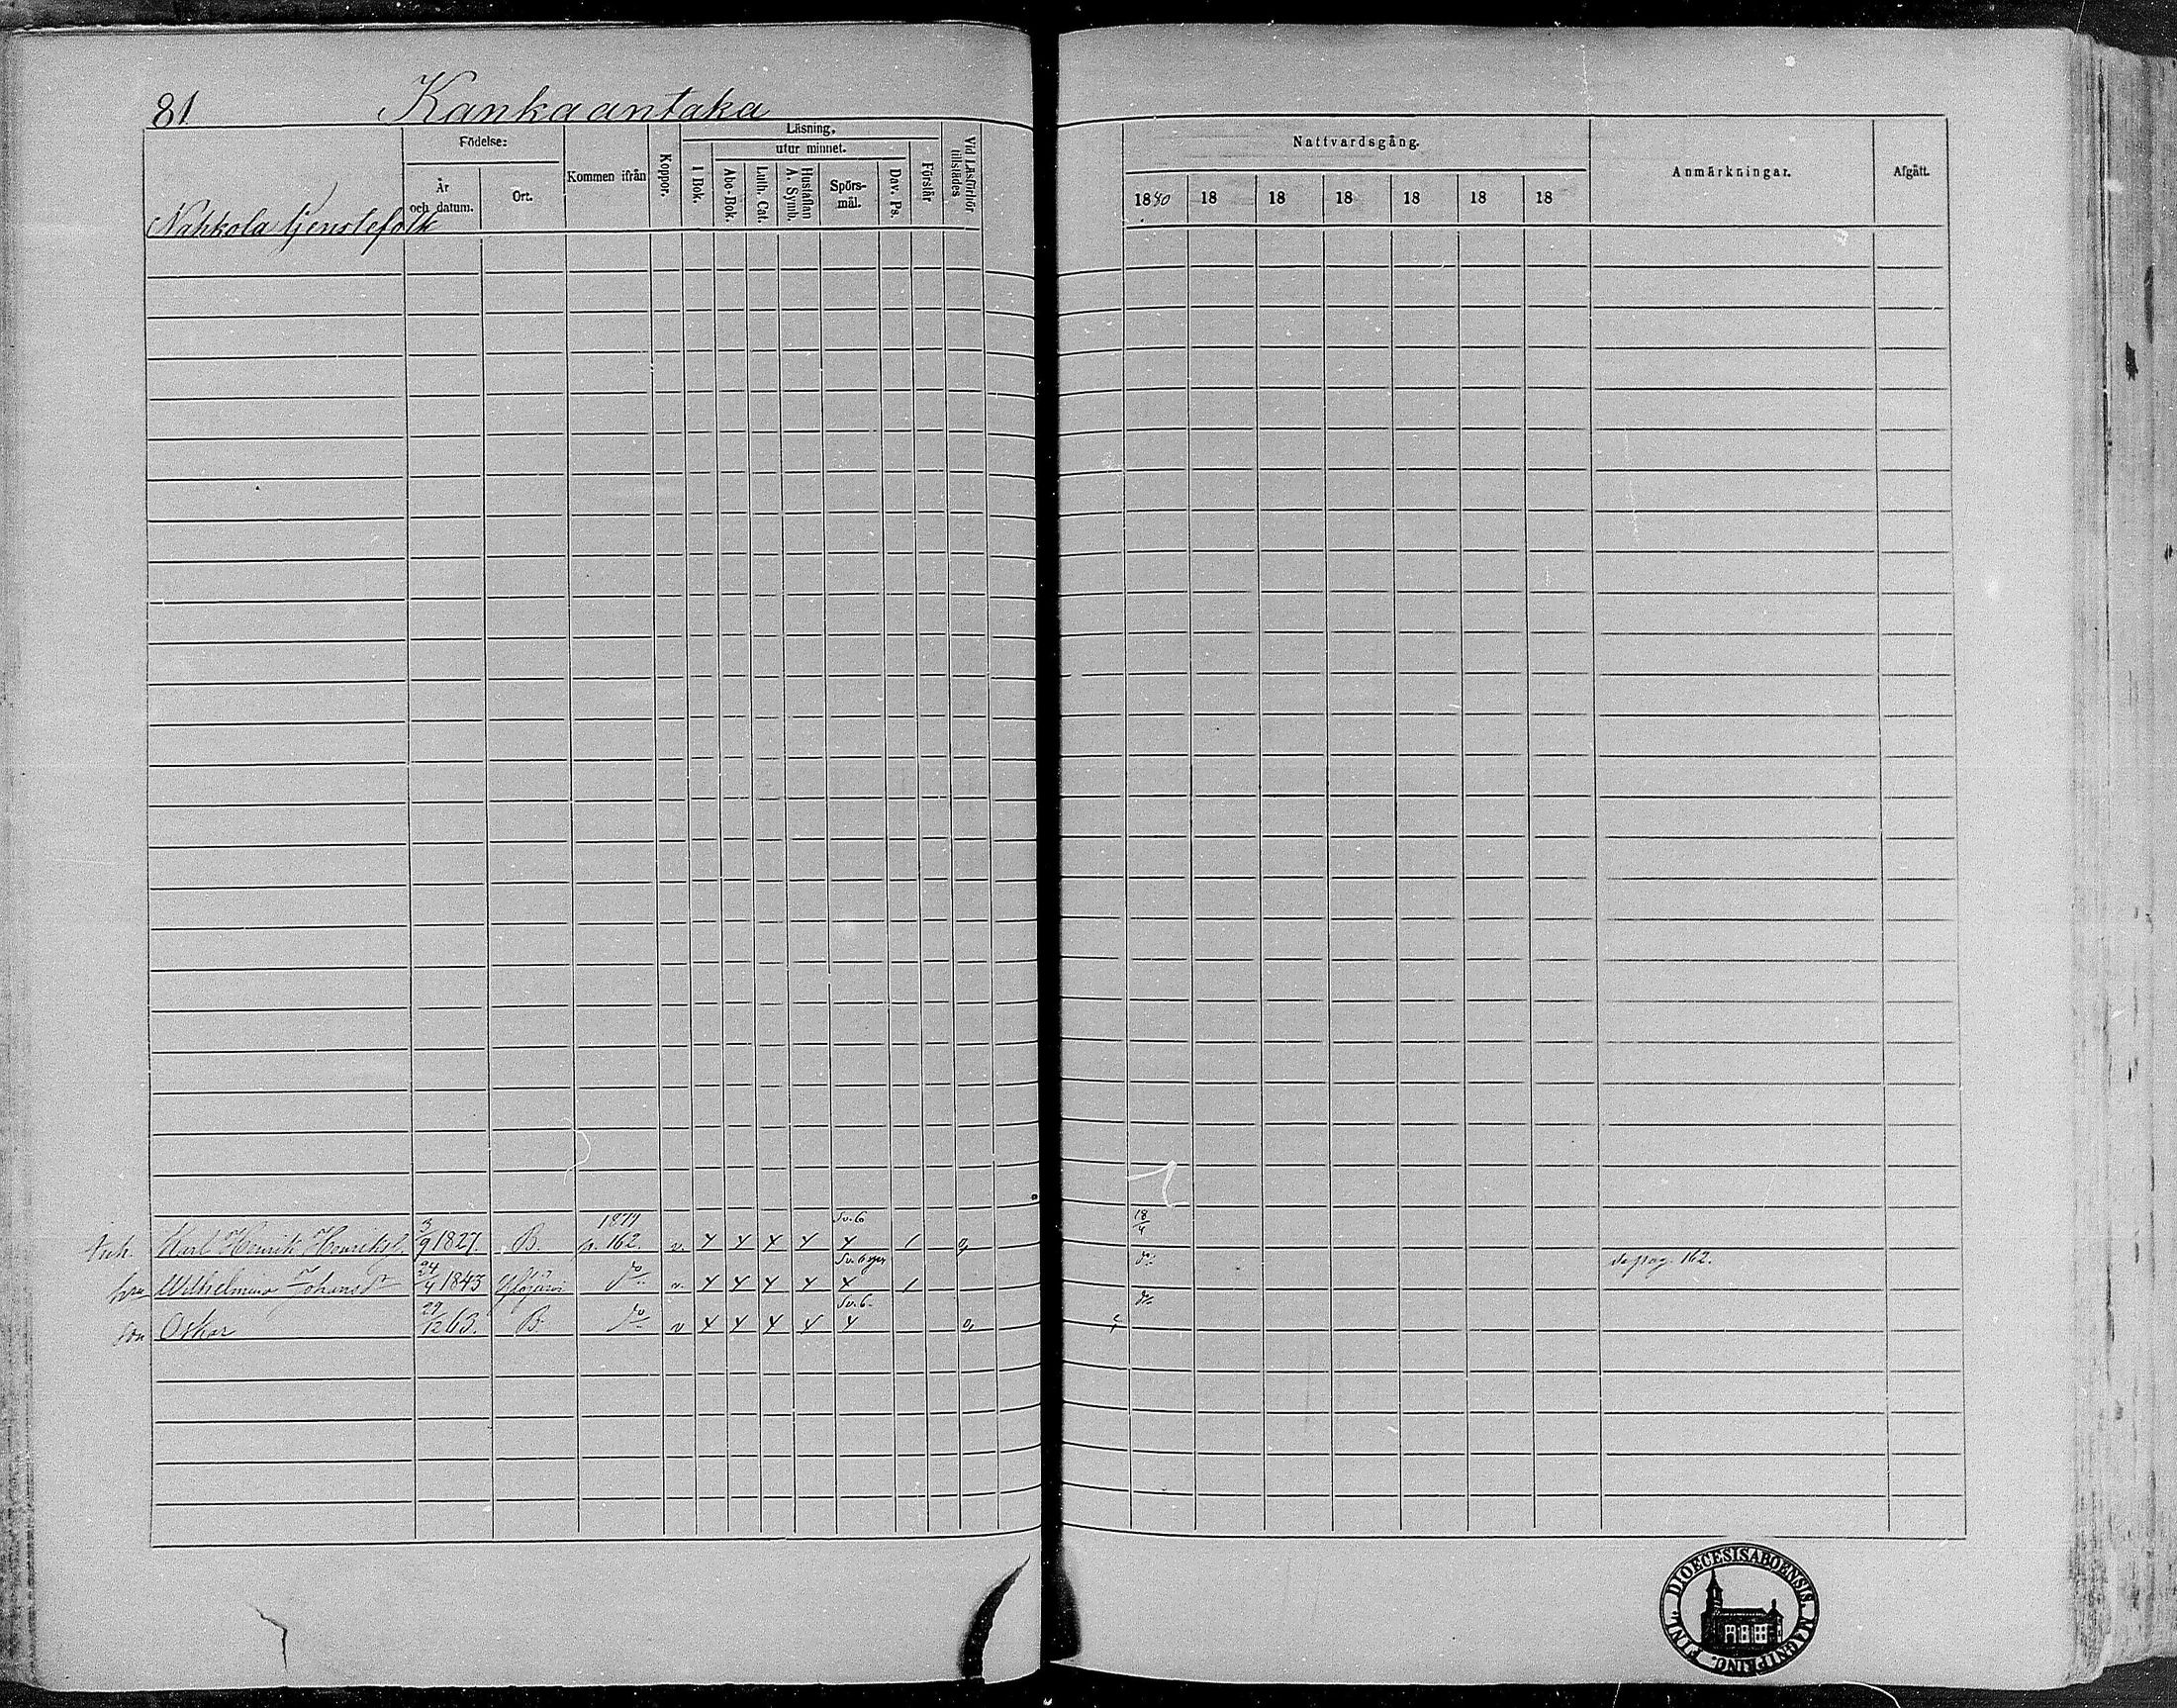 81 Kankaantaka
Födelse:
År och datum.
Ort.
Kommen ifrån
Koppor.
Läsning,
utur minnet.
I Bok.
Abc-Bok.
Luth. Cat.
Hustaflan A. Symb.
Spörs-mål.
Dav. Ps.
Förstår
Vid Läsförhör tillstädes
Nattvardsgång.
1880 18 18 18 18 18 18
Anmärkningar.
Afgått.
Nahkola tjenstefolk
1879 Sv. 6 18/4
Karl Henrik Henrikss. 3/9 1827. B. p. 162. v. 1
Sv. 6 do de pag. 162.
hru Wilhelmina Johansdr 24/4 1843 Ylöjärvi do v. 1
Sv. 6. do
son Oskar 29/12 63. B. do v
DIOECESIS ABOENSIS. MAGNI PRINC. FINL.